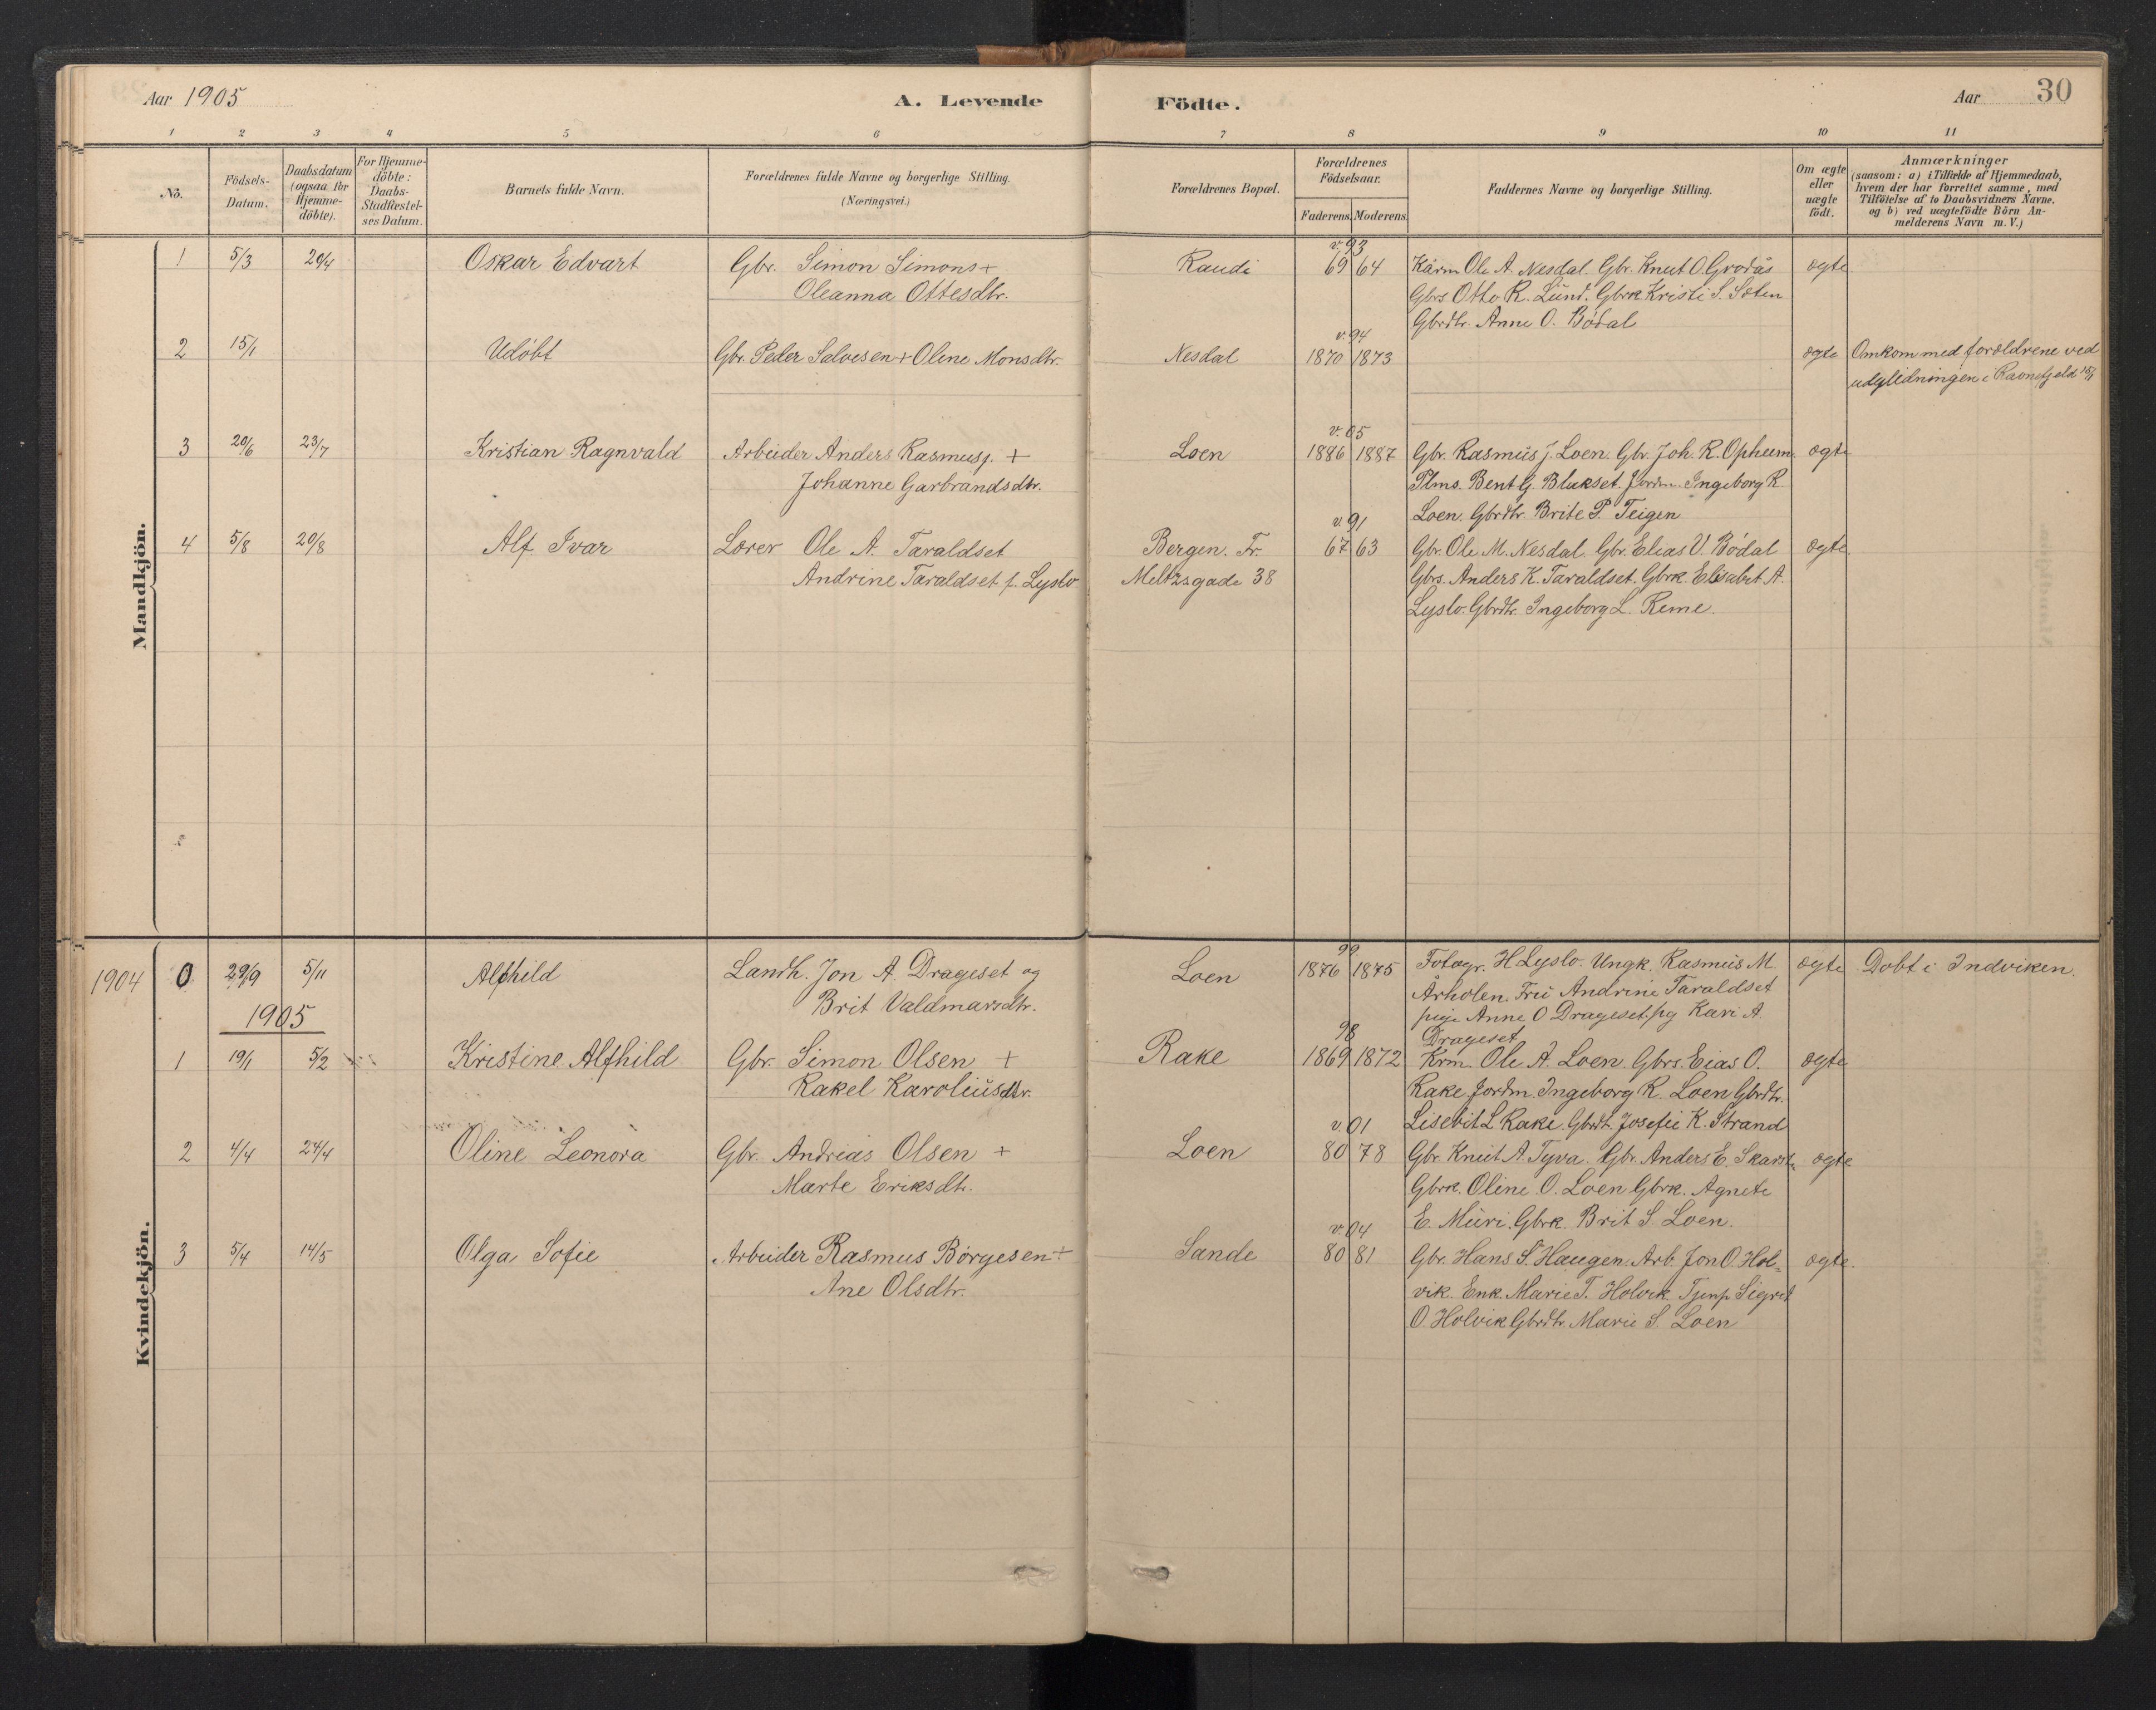 Aar 1905
A. Levende
Födte.
Aar
30
1 2 3 4 5 6 7 8 9 10 11
No.
Födsels-
Datum.
Daabsdatum
(ogsaa for
Hjemme-
döbte).
For Hjemme-
döbte:
Daabs-
Stadfæstel-
ses Datum.
Barnets fulde Navn.
Forældrenes fulde Navne og borgerlige Stilling.
(Næringsvei.)
Forældrenes Bopæl.
Forældrenes
Födselsaar.
Faderens. Moderens.
Faddernes Navne og borgerlige Stilling.
Om ægte
eller
uægte
födt.
Anmærkninger
(saasom: a) i Tilfælde af Hjemmedaab,
hvem der har forrettet samme, med
Tilföielse af to Daabsvidners Navne,
og b) ved uægtefödte Börn An-
melderens Navn m. V.)
Mandkjön.
v. 93
1 5/3 20/4 Oskar Edvart Gbr. Simon Simons + Raudi 69 64 Kårm Ole A. Nesdal. Gbr. Knut O. Grodås ægte
Oleanna Ottesdtr. Gbrs Otto R. Lund. Gbrk Kristi S. Sæten
Gbrdtr. Anne O. Bødal
v. 94
2 15/1 Udöbt Gbr. Peder Salvesen + Oline Monsdtr. Nesdal 1870 1873 ægte Omkom med forældrene ved
udglidningen i Ravnefjeld 15/1
v. 05
3 20/6 23/7 Kristian Ragnvald Arbeider Anders Rasmusj. + Loen 1886 1887 Gbr. Rasmus J. Loen. Gbr. Joh. R. Opheim ægte
Johanne Garbrandsdtr. Plms. Bent G. Blukset. Jordm. Ingeborg R.
Loen. Gbrdtr. Brite P. Teigen
v. 91
4 5/8 20/8 Alf Ivar Lærer Ole A. Taraldset Bergen. Fr. 67 63 Gbr. Ole M. Nesdal. Gbr. Elias V. Bödal ægte.
Andrine Taraldset f. Lyslo Meltzsgade 38 Gbrs. Anders K. Taraldset. Gbrk. Elisabet A.
Lyslo. Gbrdtr. Ingeborg L. Reme.
Kvindekjön.
99
1904 0 29/9 5/11 Alfhild Landh. Jon A. Drageset og Loen 1876 1875 Fotogr. H Lyslo. Ungk. Rasmus M. ægte Döbt i Indviken.
Brit Valdmarsdtr. Årholen. Fru Andrine Taraldset
pige Anne O Drageset. pg Kari A.
Drageset
1905
98
1 19/1 5/2 Kristine Alfhild Gbr. Simon Olsen + Rake 1869 1872 Krm. Ole A. Loen Gbrs. Eias O. ægte
Rakel Karoliusdtr. Rake Jordm. Ingeborg R. Loen Gbrdtr.
Lisebit L Rake. Gbrdt. Josefie K. Strand
v. 01
2 4/4 24/4 Oline Leonora Gbr. Andreas Olsen + Loen 80 78 Gbr. Knut A. Tyva. Gbr. Anders E. Skarst. ægte
Marte Eriksdtr. Gbrk. Oline O. Loen Gbrk. Agnete
E. Muri. Gbrk. Brit S. Loen.
v. 04
3 5/4 14/5 Olga Sofie Arbeider Rasmus Börgesen + Sande 80 81 Gbr. Hans S. Haugen. Arb. Jon O. Hol= ægte.
Ane Olsdtr. vik. Enk. Marie T. Holvik Tjenp Sigrid
O. Holvik Gbrdtr. Marie S. Loen